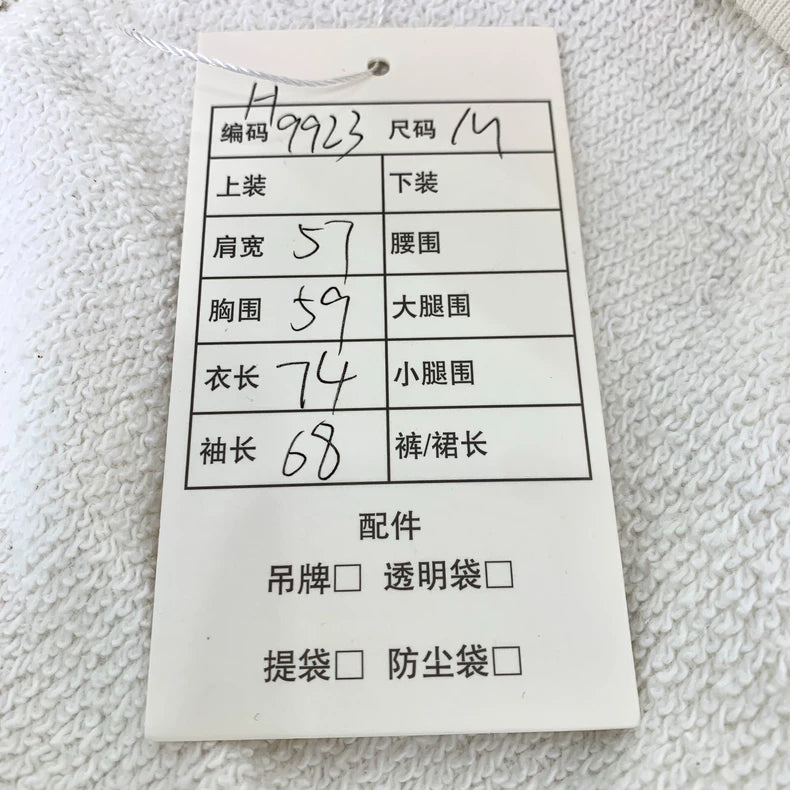 编码 H9923 尺码 M
上装 下装
肩宽 57 腰围
胸围 59 大腿围
衣长 74 小腿围
袖长 68 裤/裙长
配件
吊牌□ 透明袋□
提袋□ 防尘袋□